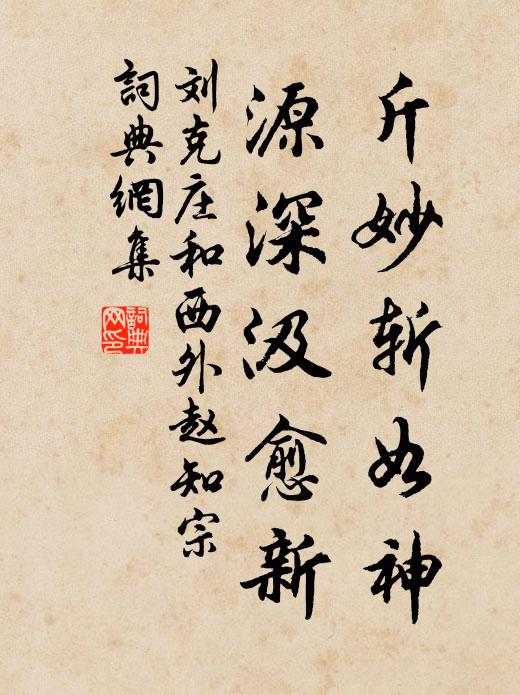 斤妙斩如神
源深汲愈新
刘克庄和西外赵知宗
詞典網集
詞典
网印